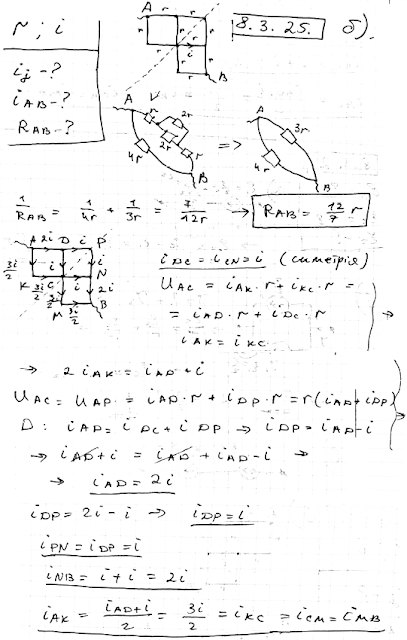 r ; i
i_j - ?
i_AB - ?
R_AB - ?
A r r
r r r
r i
r r
r B
8.3.25. б).
A r 2r 2r r 4r B
=>
A 3r 4r B
1/R_AB = 1/4r + 1/3r = 7/12r → R_AB = 12/7 r
A 2i D i P
3i/2 i i
K 3i/2 C i N
3i/2 2i
M 3i/2 B
i_DC = i_CN = i (симетрія)
U_AC = i_AK · r + i_KC · r =
= i_AD · r + i_DC · r
i_AK = i_KC
→
→ 2 i_AK = i_AD + i
U_AC = U_AP = i_AD · r + i_DP · r = r(i_AD + i_DP)
D: i_AD = i_DC + i_DP ⇒ i_DP = i_AD - i
→
→ i_AD + i = i_AD + i_AD - i →
→ i_AD = 2i
i_DP = 2i - i → i_DP = i
i_PN = i_DP = i
i_NB = i + i = 2i
i_AK = (i_AD + i)/2 = 3i/2 = i_KC = i_CM = i_MB